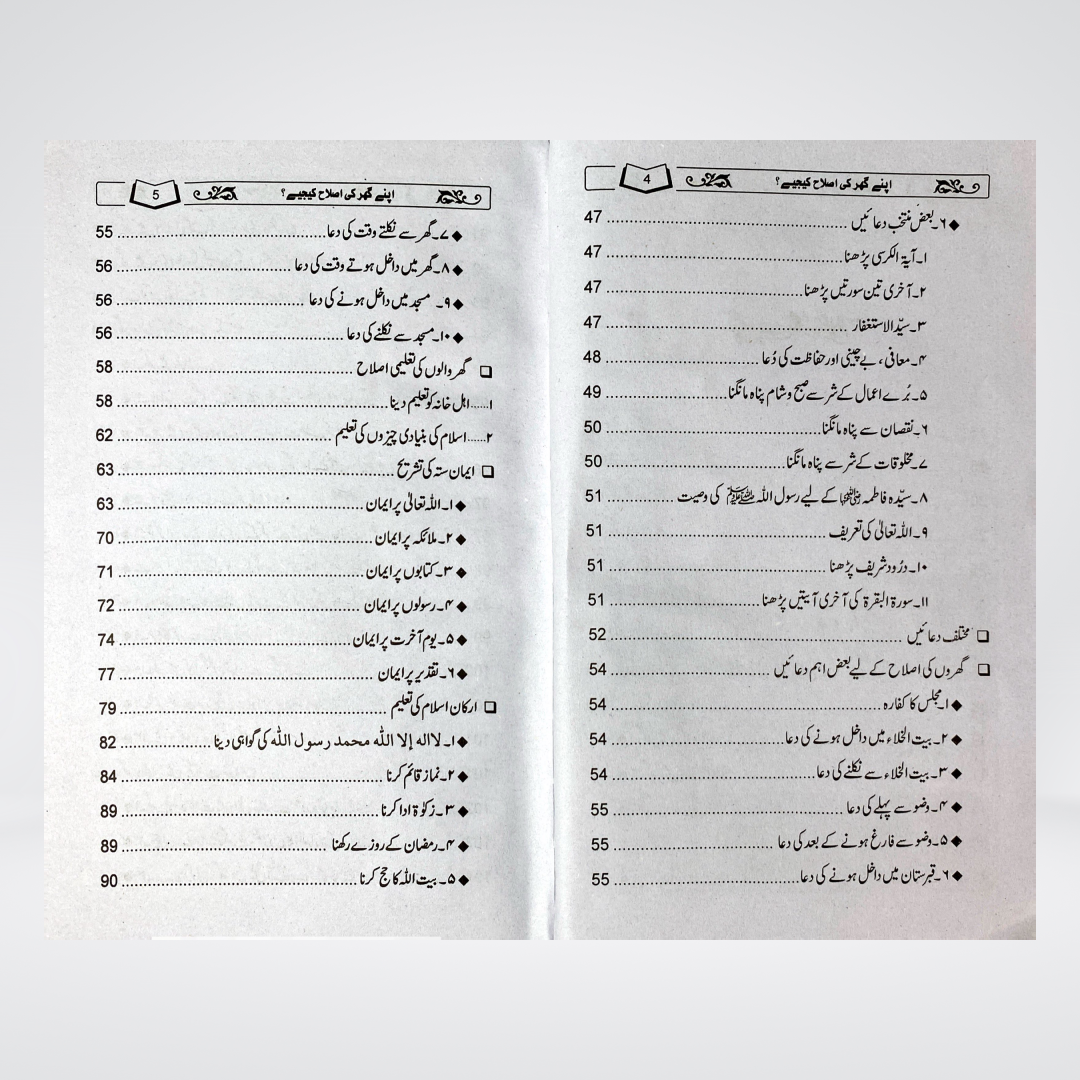 اپنے گھر کی اصلاح کیجیے؟ 4
◆ ۶۔بعض منتخب دعائیں ........ 47
۱۔آیۃ الکرسی پڑھنا ........ 47
۲۔آخری تین سورتیں پڑھنا ........ 47
۳۔سیّدالاستغفار ........ 47
۴۔معافی، بے چینی اور حفاظت کی دُعا ........ 48
۵۔بُرے اعمال کے شر سے صبح و شام پناہ مانگنا ........ 49
۶۔نقصان سے پناہ مانگنا ........ 50
۷۔مخلوقات کے شر سے پناہ مانگنا ........ 50
۸۔سیّدہ فاطمہ رضی اللہ عنہا کے لیے رسول اللہ ﷺ کی وصیت ........ 51
۹۔اللہ تعالیٰ کی تعریف ........ 51
۱۰۔درُود شریف پڑھنا ........ 51
۱۱۔سورۃ البقرۃ کی آخری آیتیں پڑھنا ........ 51
❑ مختلف دعائیں ........ 52
❑ گھروں کی اصلاح کے لیے بعض اہم دعائیں ........ 54
◆ ۱۔مجلس کا کفارہ ........ 54
◆ ۲۔بیت الخلاء میں داخل ہونے کی دعا ........ 54
◆ ۳۔بیت الخلاء سے نکلنے کی دعا ........ 54
◆ ۴۔وضو سے پہلے کی دعا ........ 55
◆ ۵۔وضو سے فارغ ہونے کے بعد کی دعا ........ 55
◆ ۶۔قبرستان میں داخل ہونے کی دعا ........ 55
اپنے گھر کی اصلاح کیجیے؟ 5
◆ ۷۔گھر سے نکلتے وقت کی دعا ........ 55
◆ ۸۔گھر میں داخل ہوتے وقت کی دعا ........ 56
◆ ۹۔ مسجد میں داخل ہونے کی دعا ........ 56
◆ ۱۰۔مسجد سے نکلنے کی دعا ........ 56
❑ گھر والوں کی تعلیمی اصلاح ........ 58
۱......اہل خانہ کو تعلیم دینا ........ 58
۲......اسلام کی بنیادی چیزوں کی تعلیم ........ 62
❑ ایمان ستہ کی تشریح ........ 63
◆ ۱۔اللہ تعالیٰ پر ایمان ........ 63
◆ ۲۔ملائکہ پر ایمان ........ 70
◆ ۳۔کتابوں پر ایمان ........ 71
◆ ۴۔رسولوں پر ایمان ........ 72
◆ ۵۔یوم آخرت پر ایمان ........ 74
◆ ۶۔تقدیر پر ایمان ........ 77
❑ ارکان اسلام کی تعلیم ........ 79
◆ ۱۔لااله إلا الله محمد رسول الله کی گواہی دینا ........ 82
◆ ۲۔نماز قائم کرنا ........ 84
◆ ۳۔زکوٰۃ ادا کرنا ........ 89
◆ ۴۔رمضان کے روزے رکھنا ........ 89
◆ ۵۔بیت اللہ کا حج کرنا ........ 90